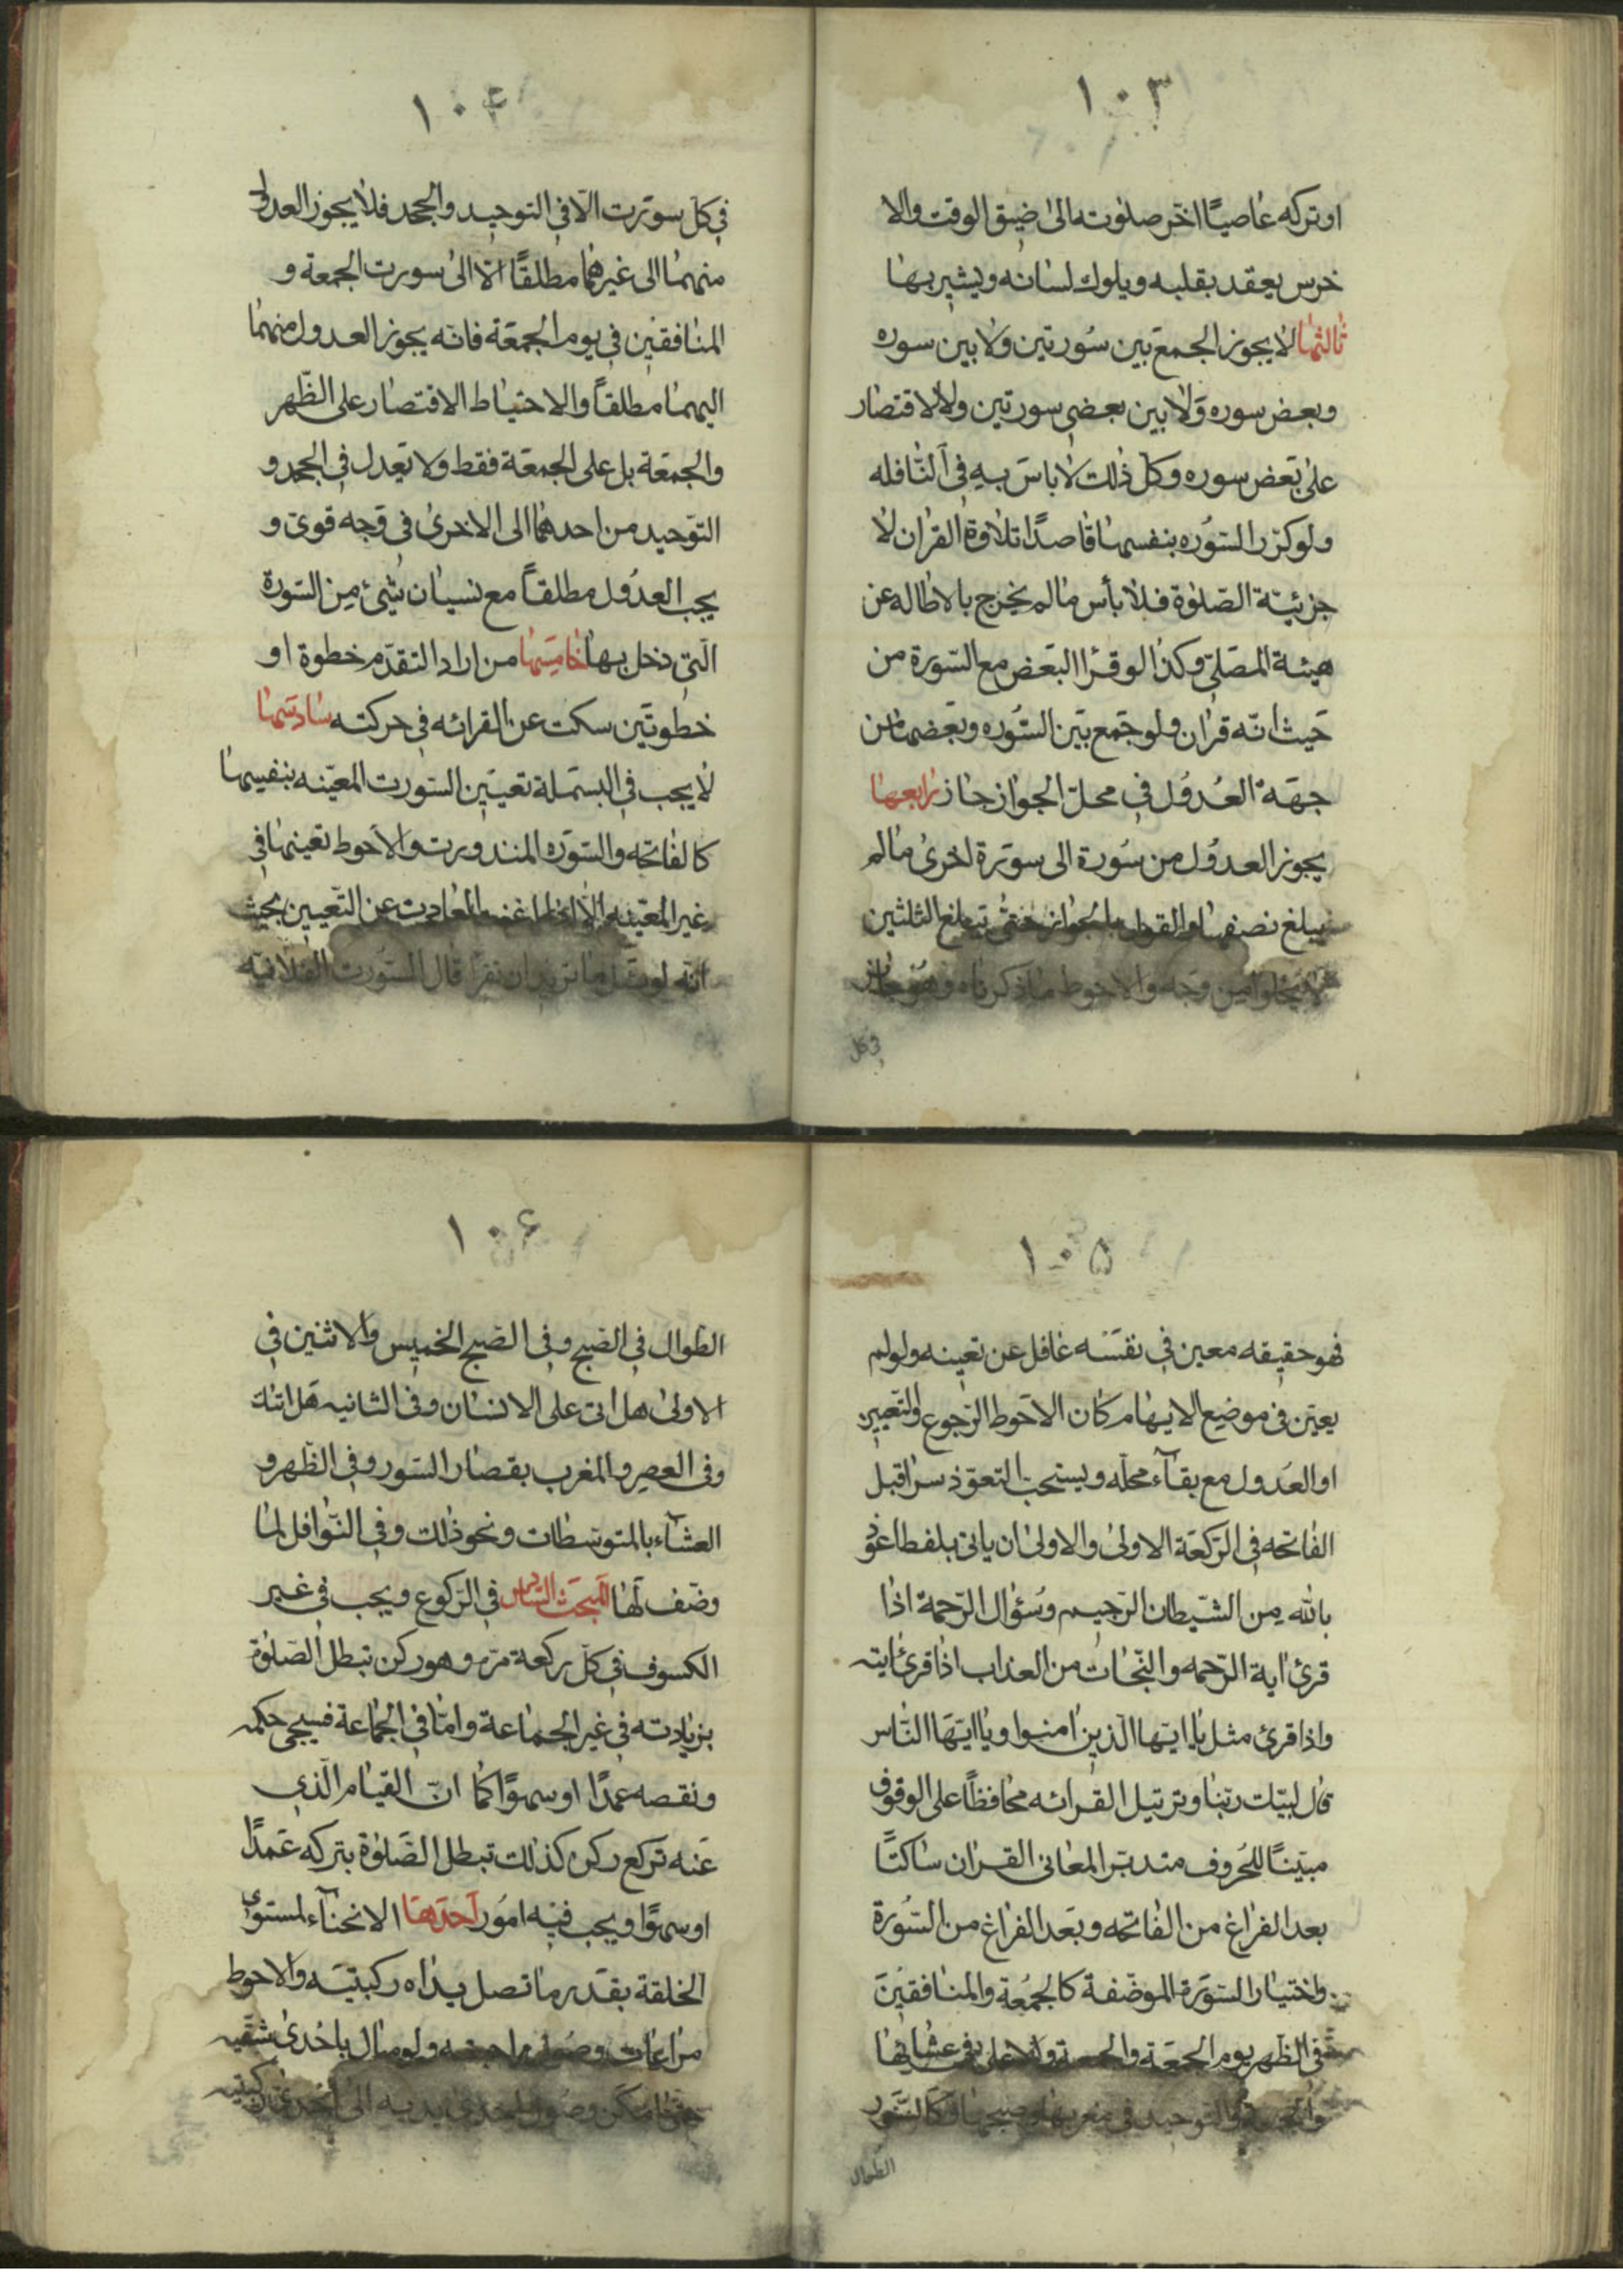 ١٠٣
او تركه عاصيًا اخّر صلوته الى ضيق الوقت والا
خرس يعقد بقلبه ويلوك لسانه ويشير بها
ثالثها لا يجوز الجمع بين سُورتين ولا بين سوره
وبعض سوره ولا بين بعضى سورتين ولا الاقتصار
على بعض سوره وكل ذلك لا باسَ بهِ فى النّافله
ولو كرّر السّوُره بنفسها قاصدًا تلاوة القرٰان لا
جزئيّة الصّلوٰة فلا بأس ما لم يخرج بالاطاله عن
هيئة المصّلى وكذا لو قرأ البعض مع السّورة من
حَيث انّه قرٰان ولو جمع بين السّوُره وبَعضها من
جهَة العُدُول فى محلّ الجواز جاز رابعها
يجوز العدوُل من سُورة الى سوَرة اخرى ما لم
يبلغ نصفها والقول بالجواز حتّى تبلغ الثلثين
لا يخلوا من وجه والاحوط ما ذكرناه وهُو جائز
فى كل
١٠٤
فى كلّ سورت الّا فى التوحيد والجحد فلا يجوز العدول
منهما الى غيرهما مطلقًا الّا الى سورت الجمعة و
المنافقين فى يوم الجمعَة فانّه يجوز العدول منهما
اليهما مطلقاً والاحتياط الاقتصار على الظّهر
والجمعَة بل على الجمعَة فقط ولا يَعدل فى الجحد و
التوّحيد من احدهما الى الاخرىٰ فى وَجه قوىّ و
يجب العدُول مطلقاً مع نسيان شئ مِن السّورة
الّتى دخل بها خامِسَها من اراد التقدّم خطوة او
خطوتَين سكت عن القرائه فى حركته سادسَها
لا يجب فى البسَملة تعيَين السّورت المعيّنه بنفسِها
كالفاتحه والسّوَره المنذورت والاَحوط تعينها فى
غير المعيّنه الّا لمن اغنته العٰادت عن التّعيين بحيث
انّه لو سئل ما تريد ان تقرأ قال السّورت الفلانيّه
١٠٥
فهو حقيقه معين فى نفسَه غافل عن تعينه ولو لم
يعيّن فى موضع الابهام كان الاحَوط الرّجوع والتعيين
او العَدول مع بقآء محلّه ويستحبّ التعوّذ سرا قبل
الفاتحه فى الرّكعَة الاولىٰ والاولىٰ ان ياتى بلفظ اعوذ
بالله مِن الشّيطان الرّجيم وسُؤال الرّحمة اذا
قرئ اية الرّحمه والنّجات من العذاب اذا قرئ ايته
واذا قرئ مثل يا ايّها الّذين امنوا ويا ايّهَا النّاس
قال لبيّك ربّنا وترتيل القرائه محافظًا على الوقوف
مبيّنًا للحُروف متدبّرا لمعانى القرٰان ساكتًا
بعد الفراغ من الفاتحه وبَعد الفراغ من السُّورة
واختيار السّوَرة الموظّفة كالجُمُعَة والمنافقيَنَ
فى الظّهر يوم الجمعَة والجمعة والاعلى فى عشائها
والجمعة والتوحيد فى مغربها وصبحها وكالسّوَر
الطوال
١٠۶
الطوال فى الصّبح وفى الصّبح الخميس والاثنين فى
الاولى هل اتى على الانسان وفى الثانيه هَل اتٰك
وفى العصر والمغرب بقصار السّور وفى الظّهر و
العشآء بالمتوسّطات ونحو ذلك وفى النّوافل لما
وضّف لَها المَبحَث السّادس فى الرّكوع ويجب فى غير
الكسوف فى كلّ ركعة مرّه وهو ركن تبطل الصّلوٰة
بزيٰادته فى غير الجماعة وامّا فى الجماعة فسيجئ حكمه
ونقصه عمدًا او سهوًا كما انّ القيام الّذى
عَنه تركع ركن كذلك تبطل الصَّلوٰة بتركه عَمدًا
او سهوًا ويجب فيه امُور اَحَدهَا الانحنآء لمستوى
الخلقة بقدر ما تصل يداه ركبتيَه والاحوط
مراعات وصُول راحتيه ولو مال باحدىٰ شقّيه
حتى امكن وصُول احدى يديه الى احدى ركبتيه